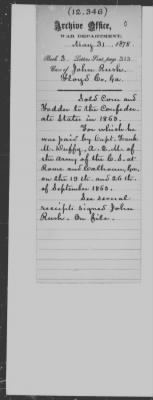 (12.346)
Archive Office,
WAR DEPARTMENT,
May 31. 1878
Book 3. Letter First, page 313
Case of John Rush.
Floyd Co. Ga.
Sold Corn and
Fodder to the Confeder-
ate States in 1863.
For which he
was paid by Capt. Frank
M. Duffy, A. Q. M. of
the Army of the C. S. at
Rome and Calhoun, Ga.
on the 19th and 26th
of September 1863.
See several
receipts signed John
Rush. On file.